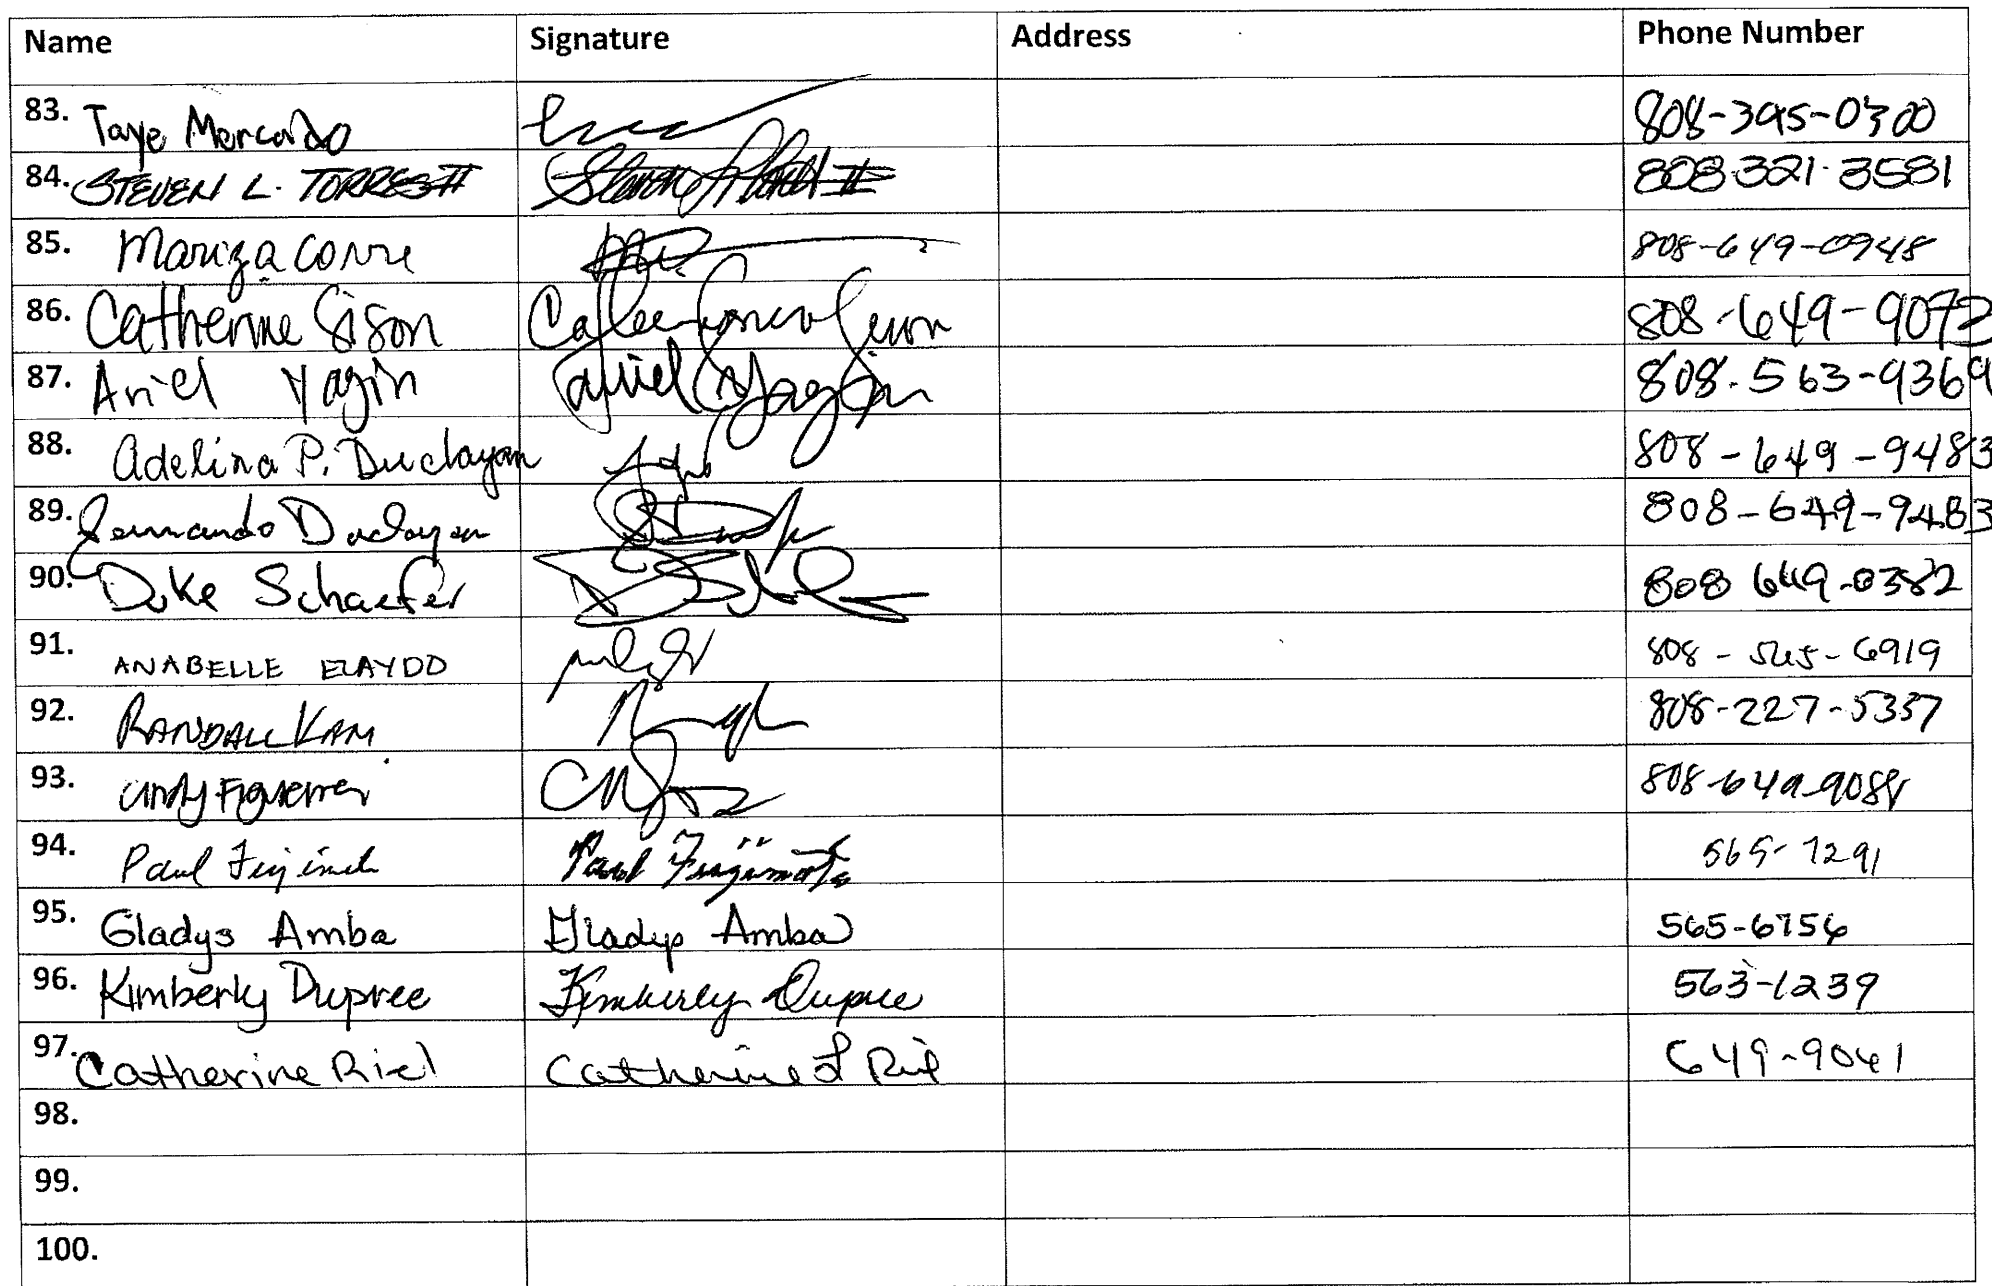 Name Signature Address Phone Number
83. Taye Mercado 808-395-0300
84. STEVEN L. TORRES II 808 321-3581
85. Mariza Corre 808-649-0948
86. Catherine Sison 808-649-9072
87. Ariel Yagin Ariel Yagin 808-563-9369
88. Adelina P. Duclayan 808-649-9483
89. Fernando Duclayan 808-649-9483
90. Duke Schaefer 808 649-0382
91. ANABELLE 808-565-6919
92. RANDALL KAM 808-227-5337
93. 808-649-9088
94. Paul Paul Fujimoto 565-7291
95. Gladys Amba Gladys Amba 565-6756
96. Kimberly Dupree Kimberly Dupree 563-1239
97. Catherine Riel Catherine L Riel 649-9041
98.
99.
100.